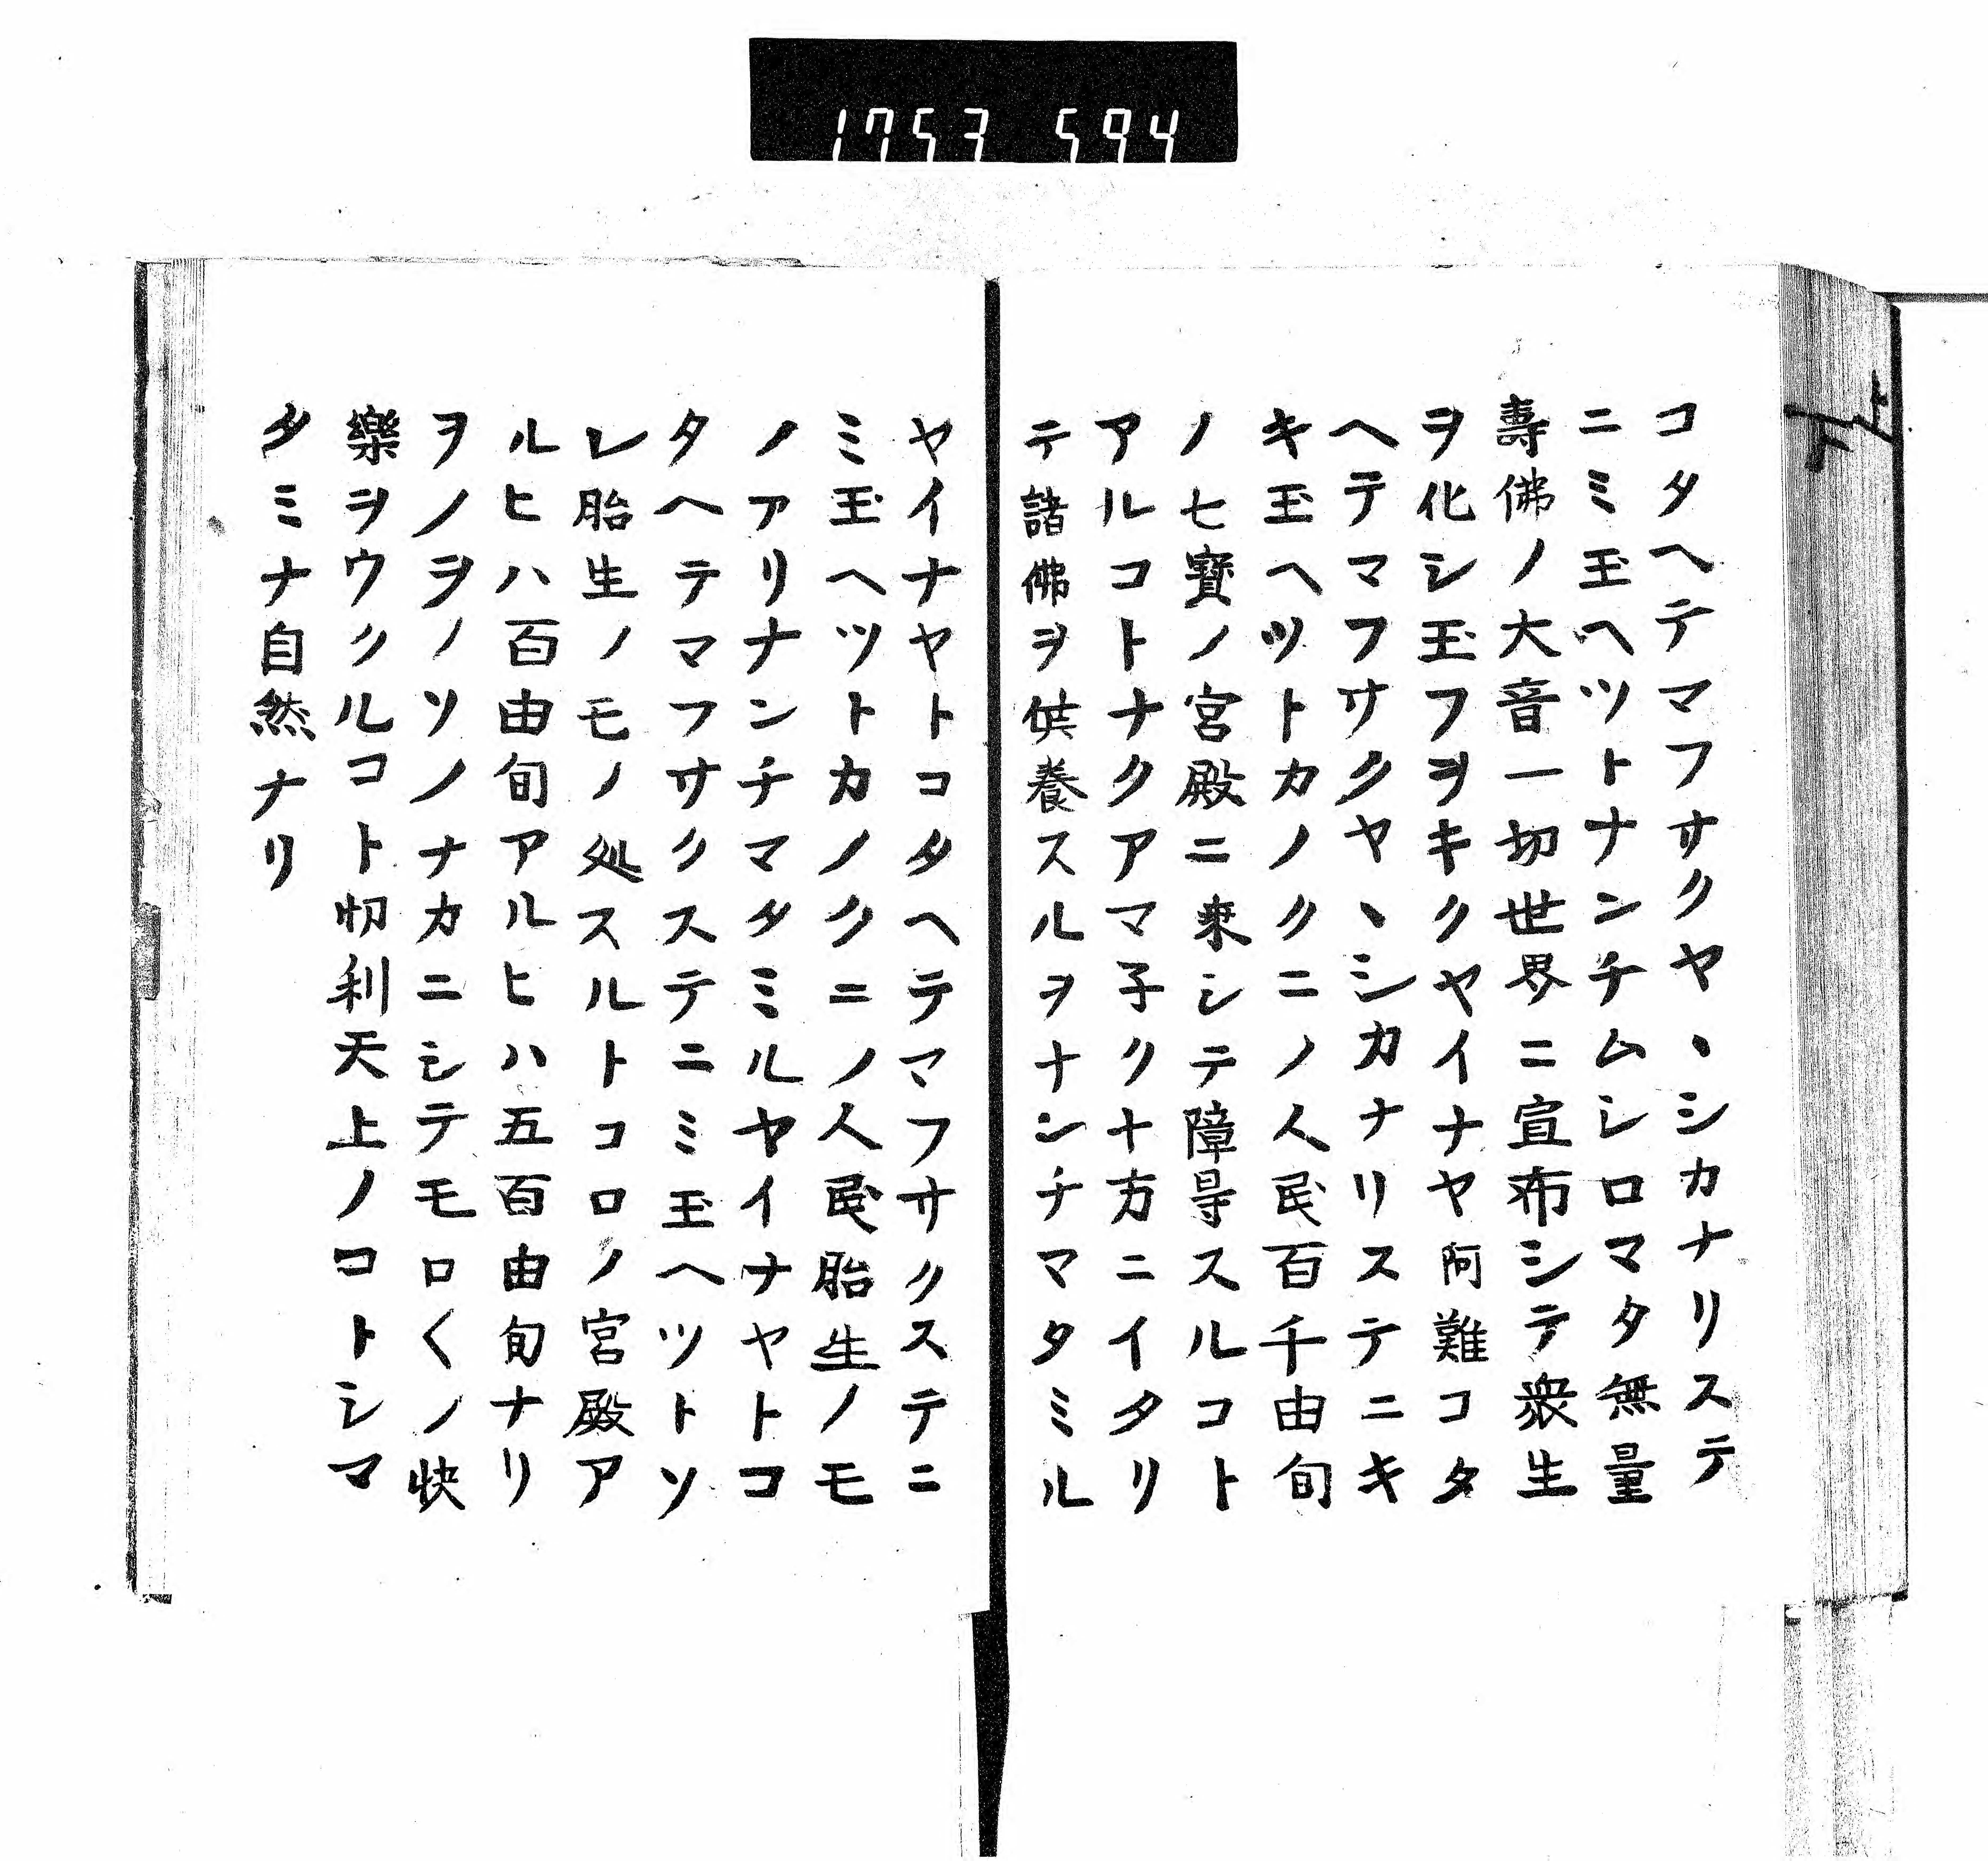 1753 594
コタヘテマフサクヤヽシカナリステ
ニミ玉ヘツトナンチムシロマタ無量
壽佛ノ大音一切世界ニ宣布シテ衆生
ヲ化シ玉フヲキクヤイナヤ阿難コタ
ヘテマフサクヤヽシカナリステニキ
キ玉ヘツトカノクニノ人民百千由旬
ノ七寶ノ宮殿ニ乘シテ障㝵スルコト
アルコトナクアマ子ク十方ニイタリ
テ諸佛ヲ供養スルヲナンチマタミル
ヤイナヤトコタヘテマフサクステニ
ミ玉ヘツトカノクニノ人民胎生ノモ
ノアリナンチマタミルヤイナヤトコ
タヘテマフサクステニミ玉ヘツトソ
レ胎生ノモノ処スルトコロノ宮殿ア
ルヒハ百由旬アルヒハ五百由旬ナリ
ヲノヲノソノナカニシテモロ〱ノ快
樂ヲウクルコト忉利天上ノコトシマ
タミナ自然ナリ